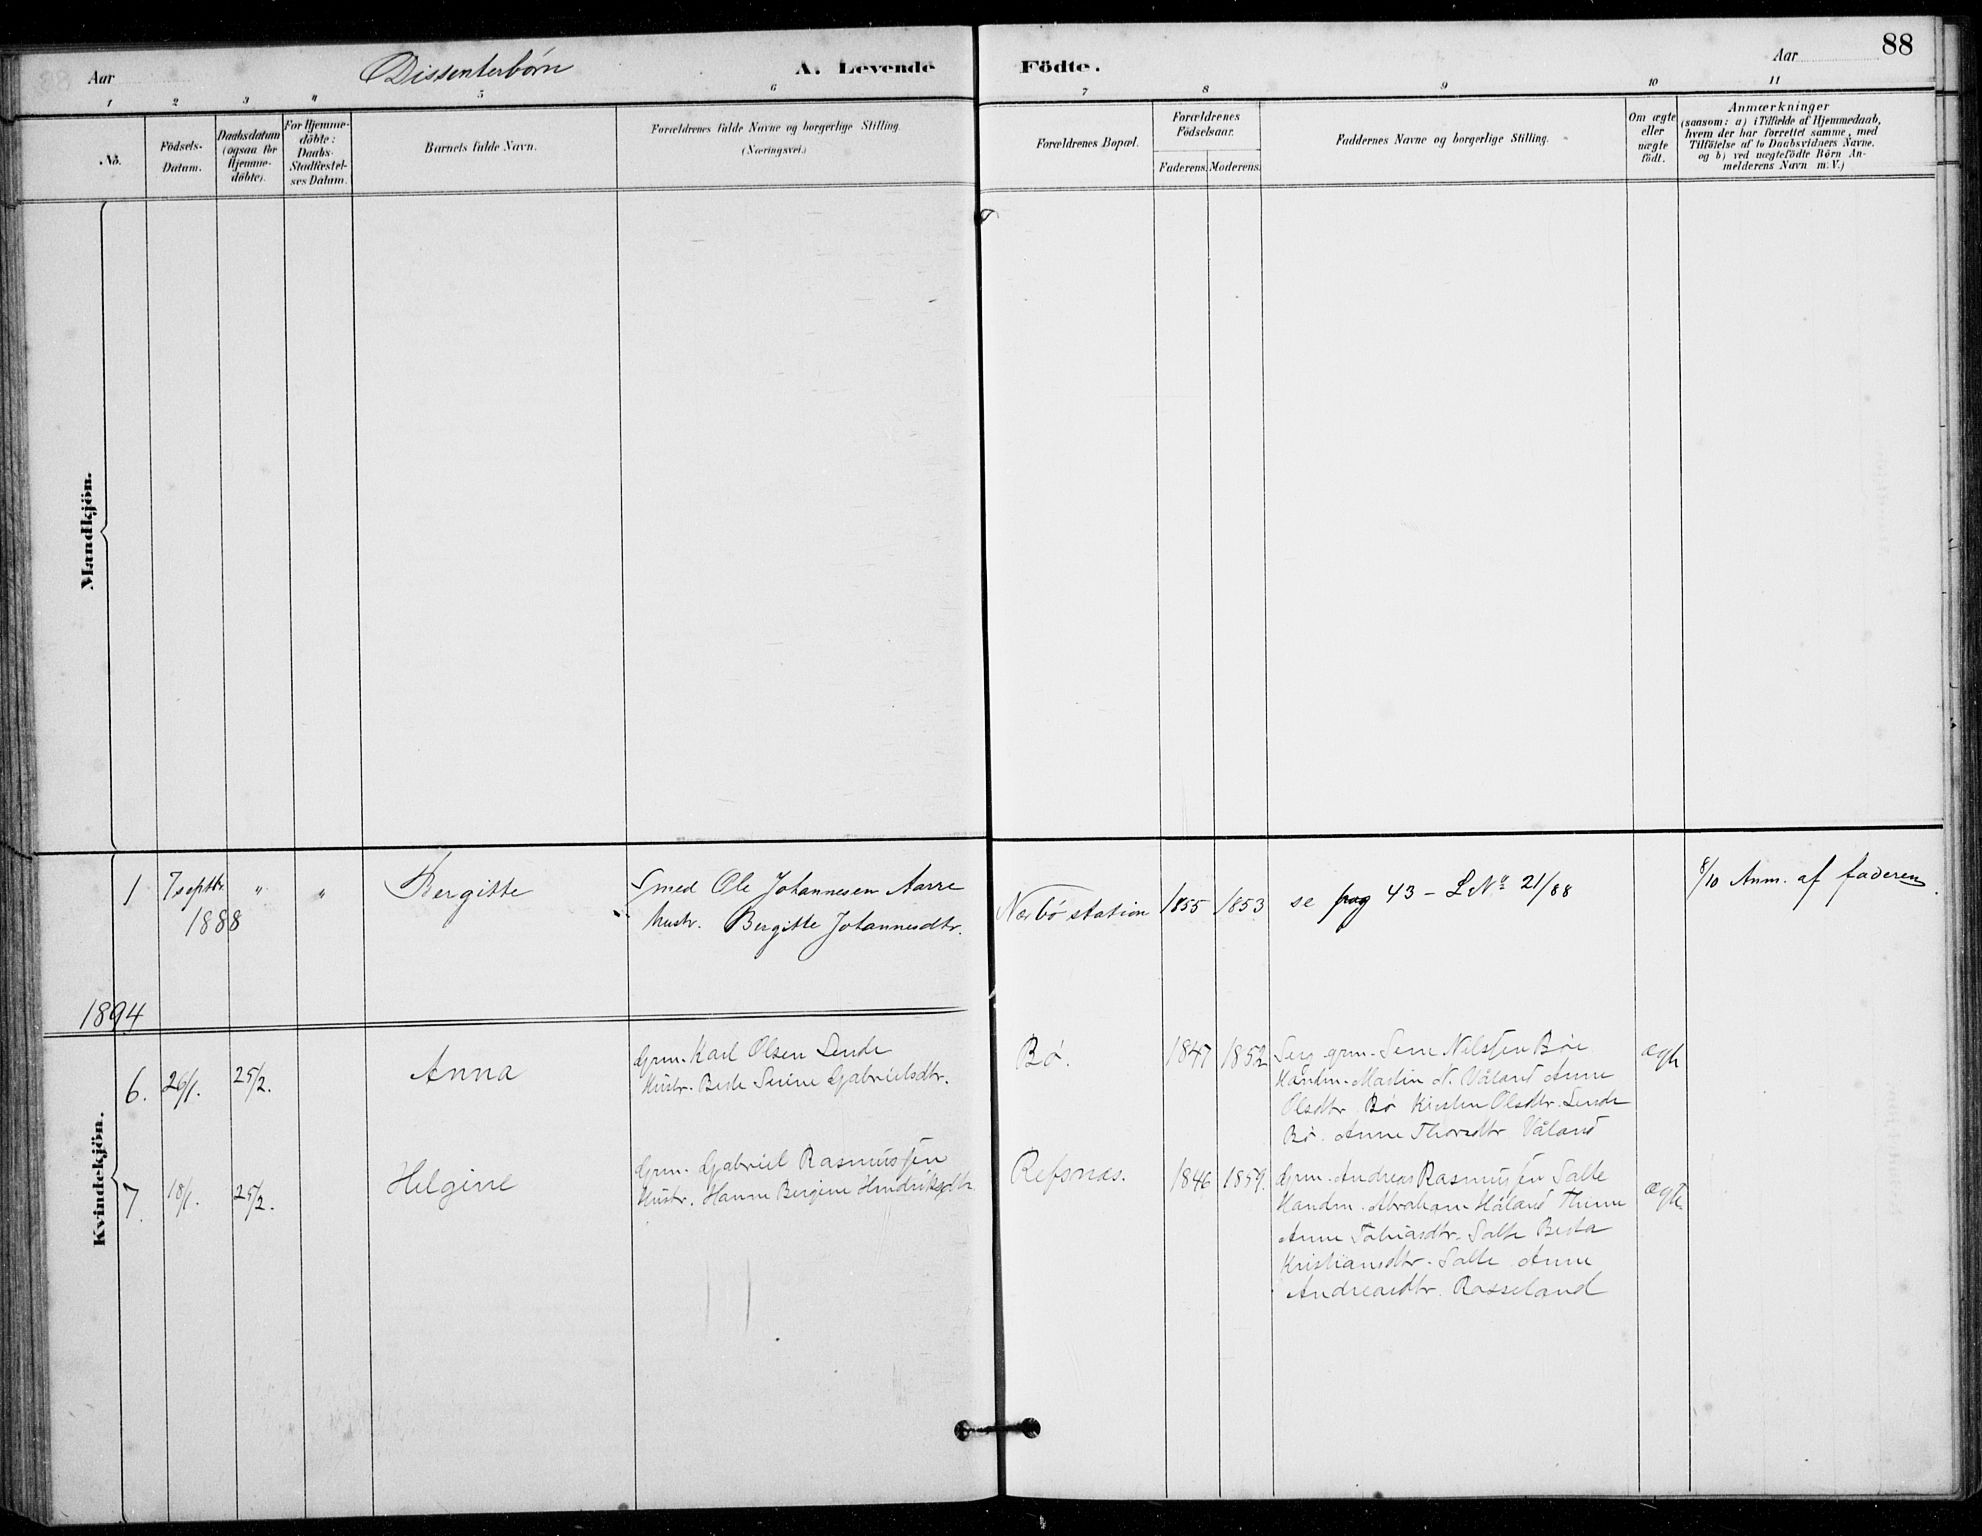 88
Aar
Dissenterbørn
A. Levende
Födte.
Aar
1 2 3 4 5 6 7 8 9 10 11
No.
Födsels-
Datum.
Daabsdatum
(ogsaa for
Hjemme-
döbte).
For Hjemme-
döbte:
Daabs-
Stadfæstel-
ses Datum.
Barnets fulde Navn.
Forældrenes fulde Navne og borgerlige Stilling.
(Næringsvei.)
Forældrenes Bopæl.
Forældrenes
Födselsaar.
Faderens. Moderens.
Faddernes Navne og borgerlige Stilling.
Om ægte
eller
uægte
födt.
Anmærkninger
(saasom: a) i Tilfælde af Hjemmedaab,
hvem der har forrettet samme, med
Tilföielse af to Daabsvidners Navne,
og b) ved uægtefödte Börn An-
melderens Navn m. V.)
Mandkjön.
Kvindekjön.
1 7 septbr. " " Bergitte Smed Ole Johannesen Aarre
1888 hustr. Bergitte Johannesdtr.
Nærbø station 1855 1853 se pag 43 – LNo 21/88
8/10 Anm. af faderen.
1894
6. 26/1. 25/2. Anna Grm. Karl Olsen Lende
Hustr. Berte Serine Gabrielsdtr.
Bø. 1847 1852 grm. Nilssen Bøe
Handm. Martin N. Våland Anne
Olsdtr. Bø Kirsten Olsdtr. Lende
Bø. Anne Thorsdtr. Våland
ægte
7. 18/1. 25/2. Helgine Grm. Gabriel Rasmussen
Hustr. Hanne Bergine Hendriksdtr.
Refsnæs. 1846 1859. Grm. Andreas Rasmussen Salte
Handm. Abraham Håland Thime
Anne Tobiasdtr. Salte Berta
Kristiansdtr. Salte Anne
Andreasdtr. Rosseland
ægte